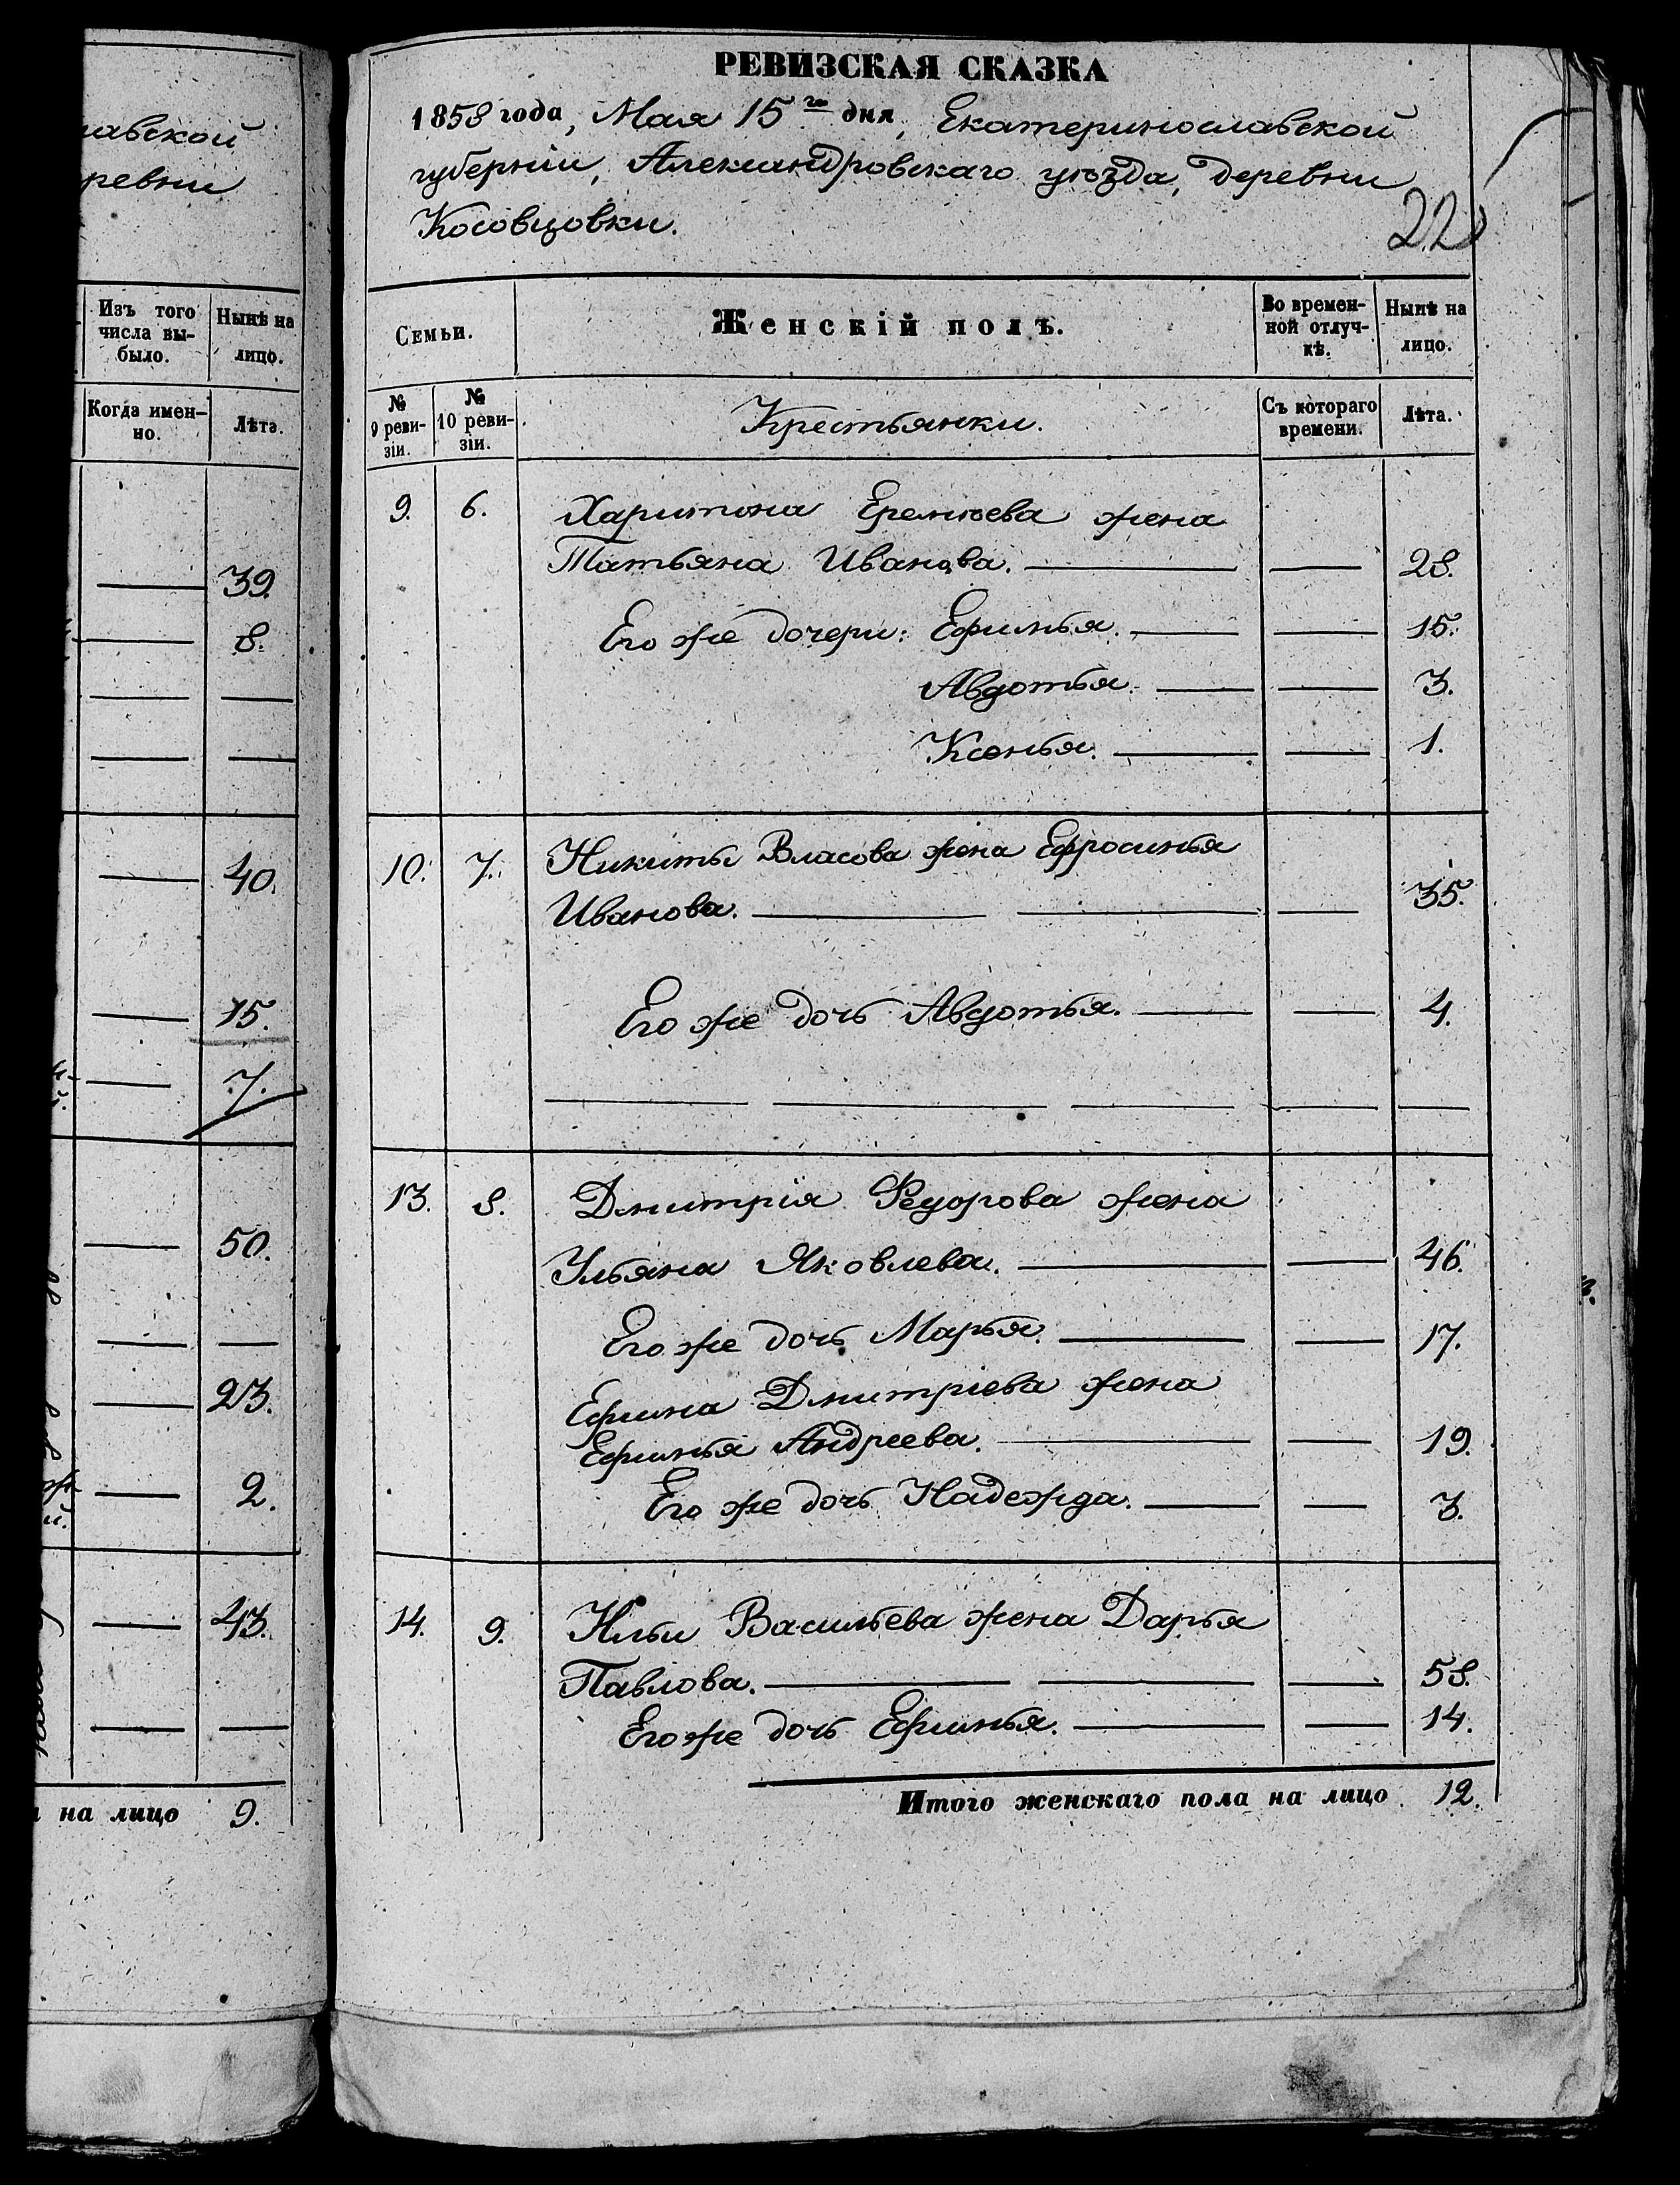 авской
ревни
Изъ того числа вы-было.
Нынѣ на лицо.
Когда имен-но.
Лѣта.
39.
8.
40.
15.
7.
50.
23.
2.
43.
на лицо 9.
РЕВИЗСКАЯ СКАЗКА
1858 года, Мая 15го дня, Екатеринославской
губерніи, Александровскаго уѣзда, деревни
Косовцовки.
22
Семьи.
Женскій полъ.
Во времен-ной отлуч-кѣ.
Нынѣ на лицо.
№ 9 реви-зіи.
№ 10 реви-зіи.
Крестьянки.
Съ котораго времени.
Лѣта.
9. 6. Харитона Еремѣева жена
Татьяна Иванова. 28.
Его же дочери: Ефимья. 15.
Авдотья. 3.
Ксенья. 1.
10. 7. Никиты Власова жена Ефросинья
Иванова. 35.
Его же дочь Авдотья. 4.
13. 8. Дмитрія Федорова жена
Ульяна Яковлева. 46.
Его же дочь Марья. 17.
Ефима Дмитріева жена
Ефимья Андреева. 19.
Его же дочь Надежда. 3.
14. 9. Ильи Васильева жена Дарья
Павлова. 58.
Его же дочь Ефимья. 14.
Итого женскаго пола на лицо 12.